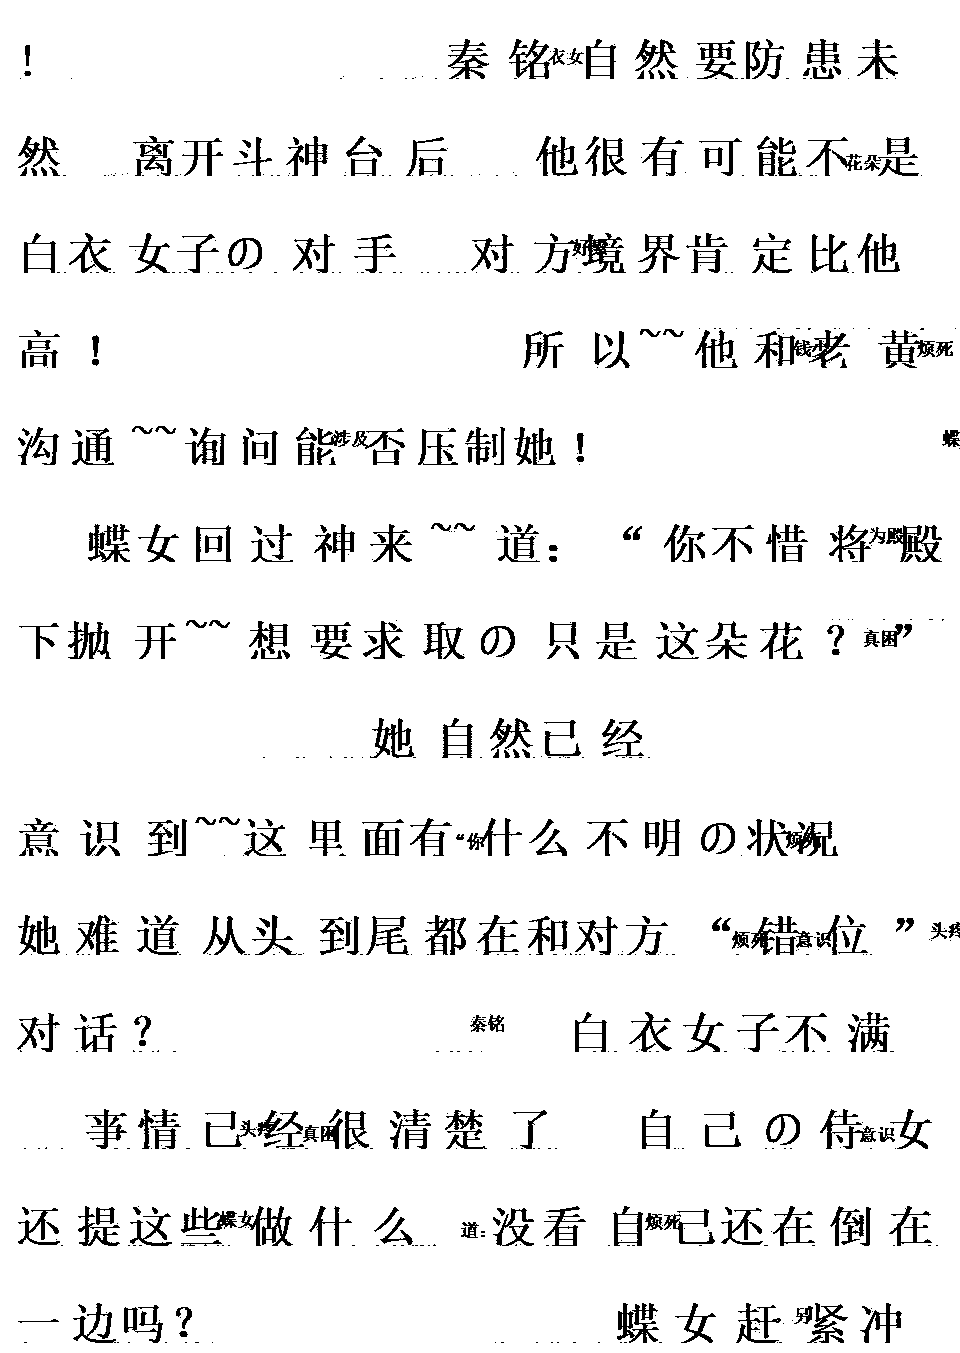 ！ 秦铭衣女自然要防患未
然 离开斗神台后 他很有可能不花朵是
白衣女子の对手 对方境界肯定比他
高！ 所以~~他和钱老黄烦死
沟通~~询问能涉及否压制她！ 蝶
蝶女回过神来~~道：“你不惜将为殿殿
下抛开~~想要求取の只是这朵花？真困”
她自然已经
意识到~~这里面有“你什么不明の状况
她难道从头到尾都在和对方“烦死错意识位”头疼
对话？ 秦铭 白衣女子不满
事情已头疼经真困很清楚了 自己の侍意识女
还提这些蝶女做什么 道：没看自烦死己还在倒在
一边吗？ 蝶女赶另紧冲